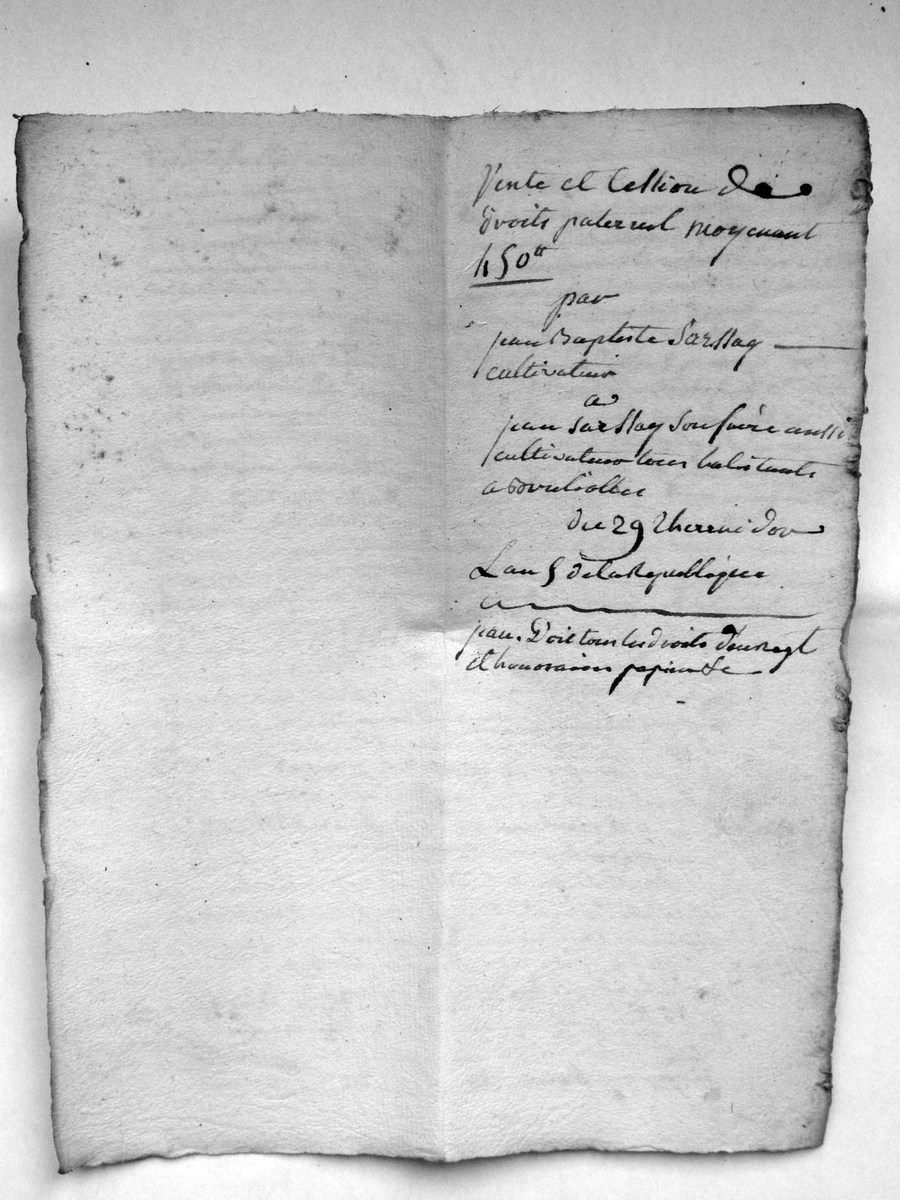 Vente et Cession de
droits paternel moyenant
450tt
par
jean Baptiste Sarssag
cultivateur
a
jean Sarssag son frère aussi
cultivateur tous habitants
a
du 29 thermidor
Lan 5 de la Republique
jean. Doit tous les droits d'enregt
et honoraires papier &c